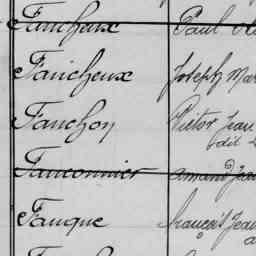 Faucheux Paul
Faucheux Joseph Mar
Fauchon Victor Jean
dit
Fauconnier Armand Jean
Fauque François Jean